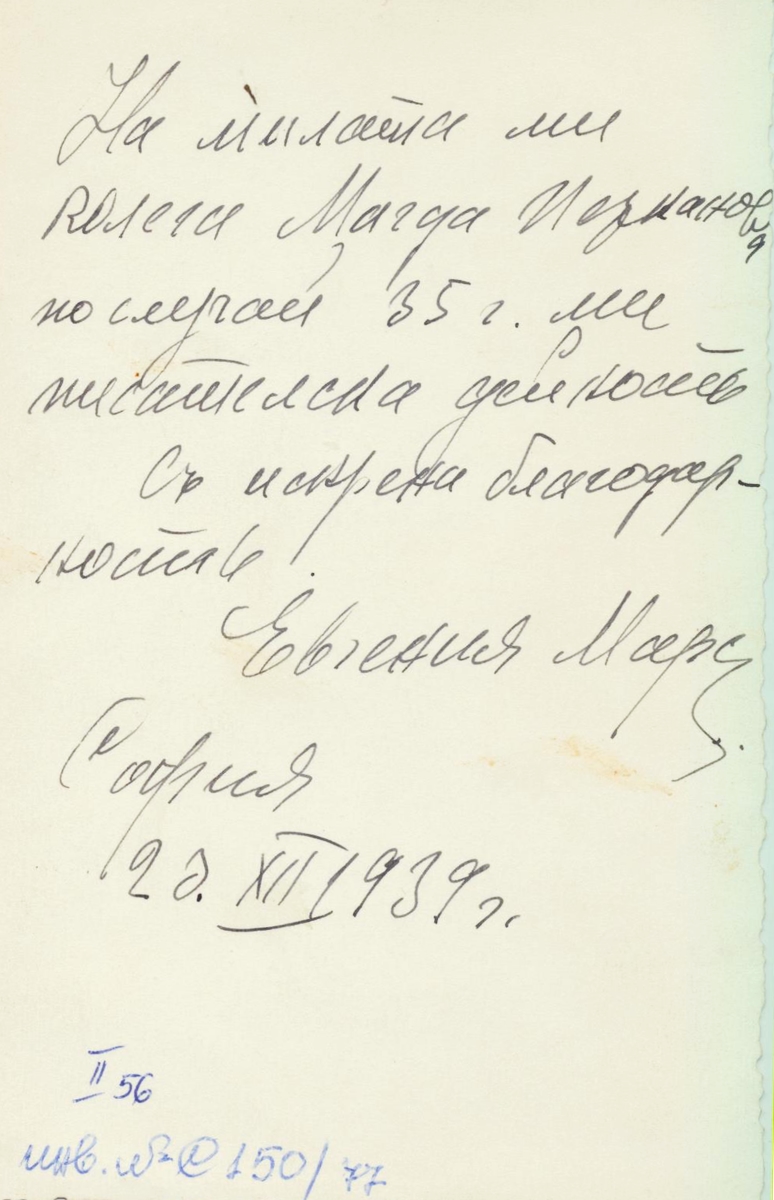 На милата ми
колега Магда Петканова
по случай 35 г. ми
писателска дейность
Съ искрена благодар-
ность.
Евгения Марс
София
2 д. XII 1939 г.
II 56
инв. № С 150/77